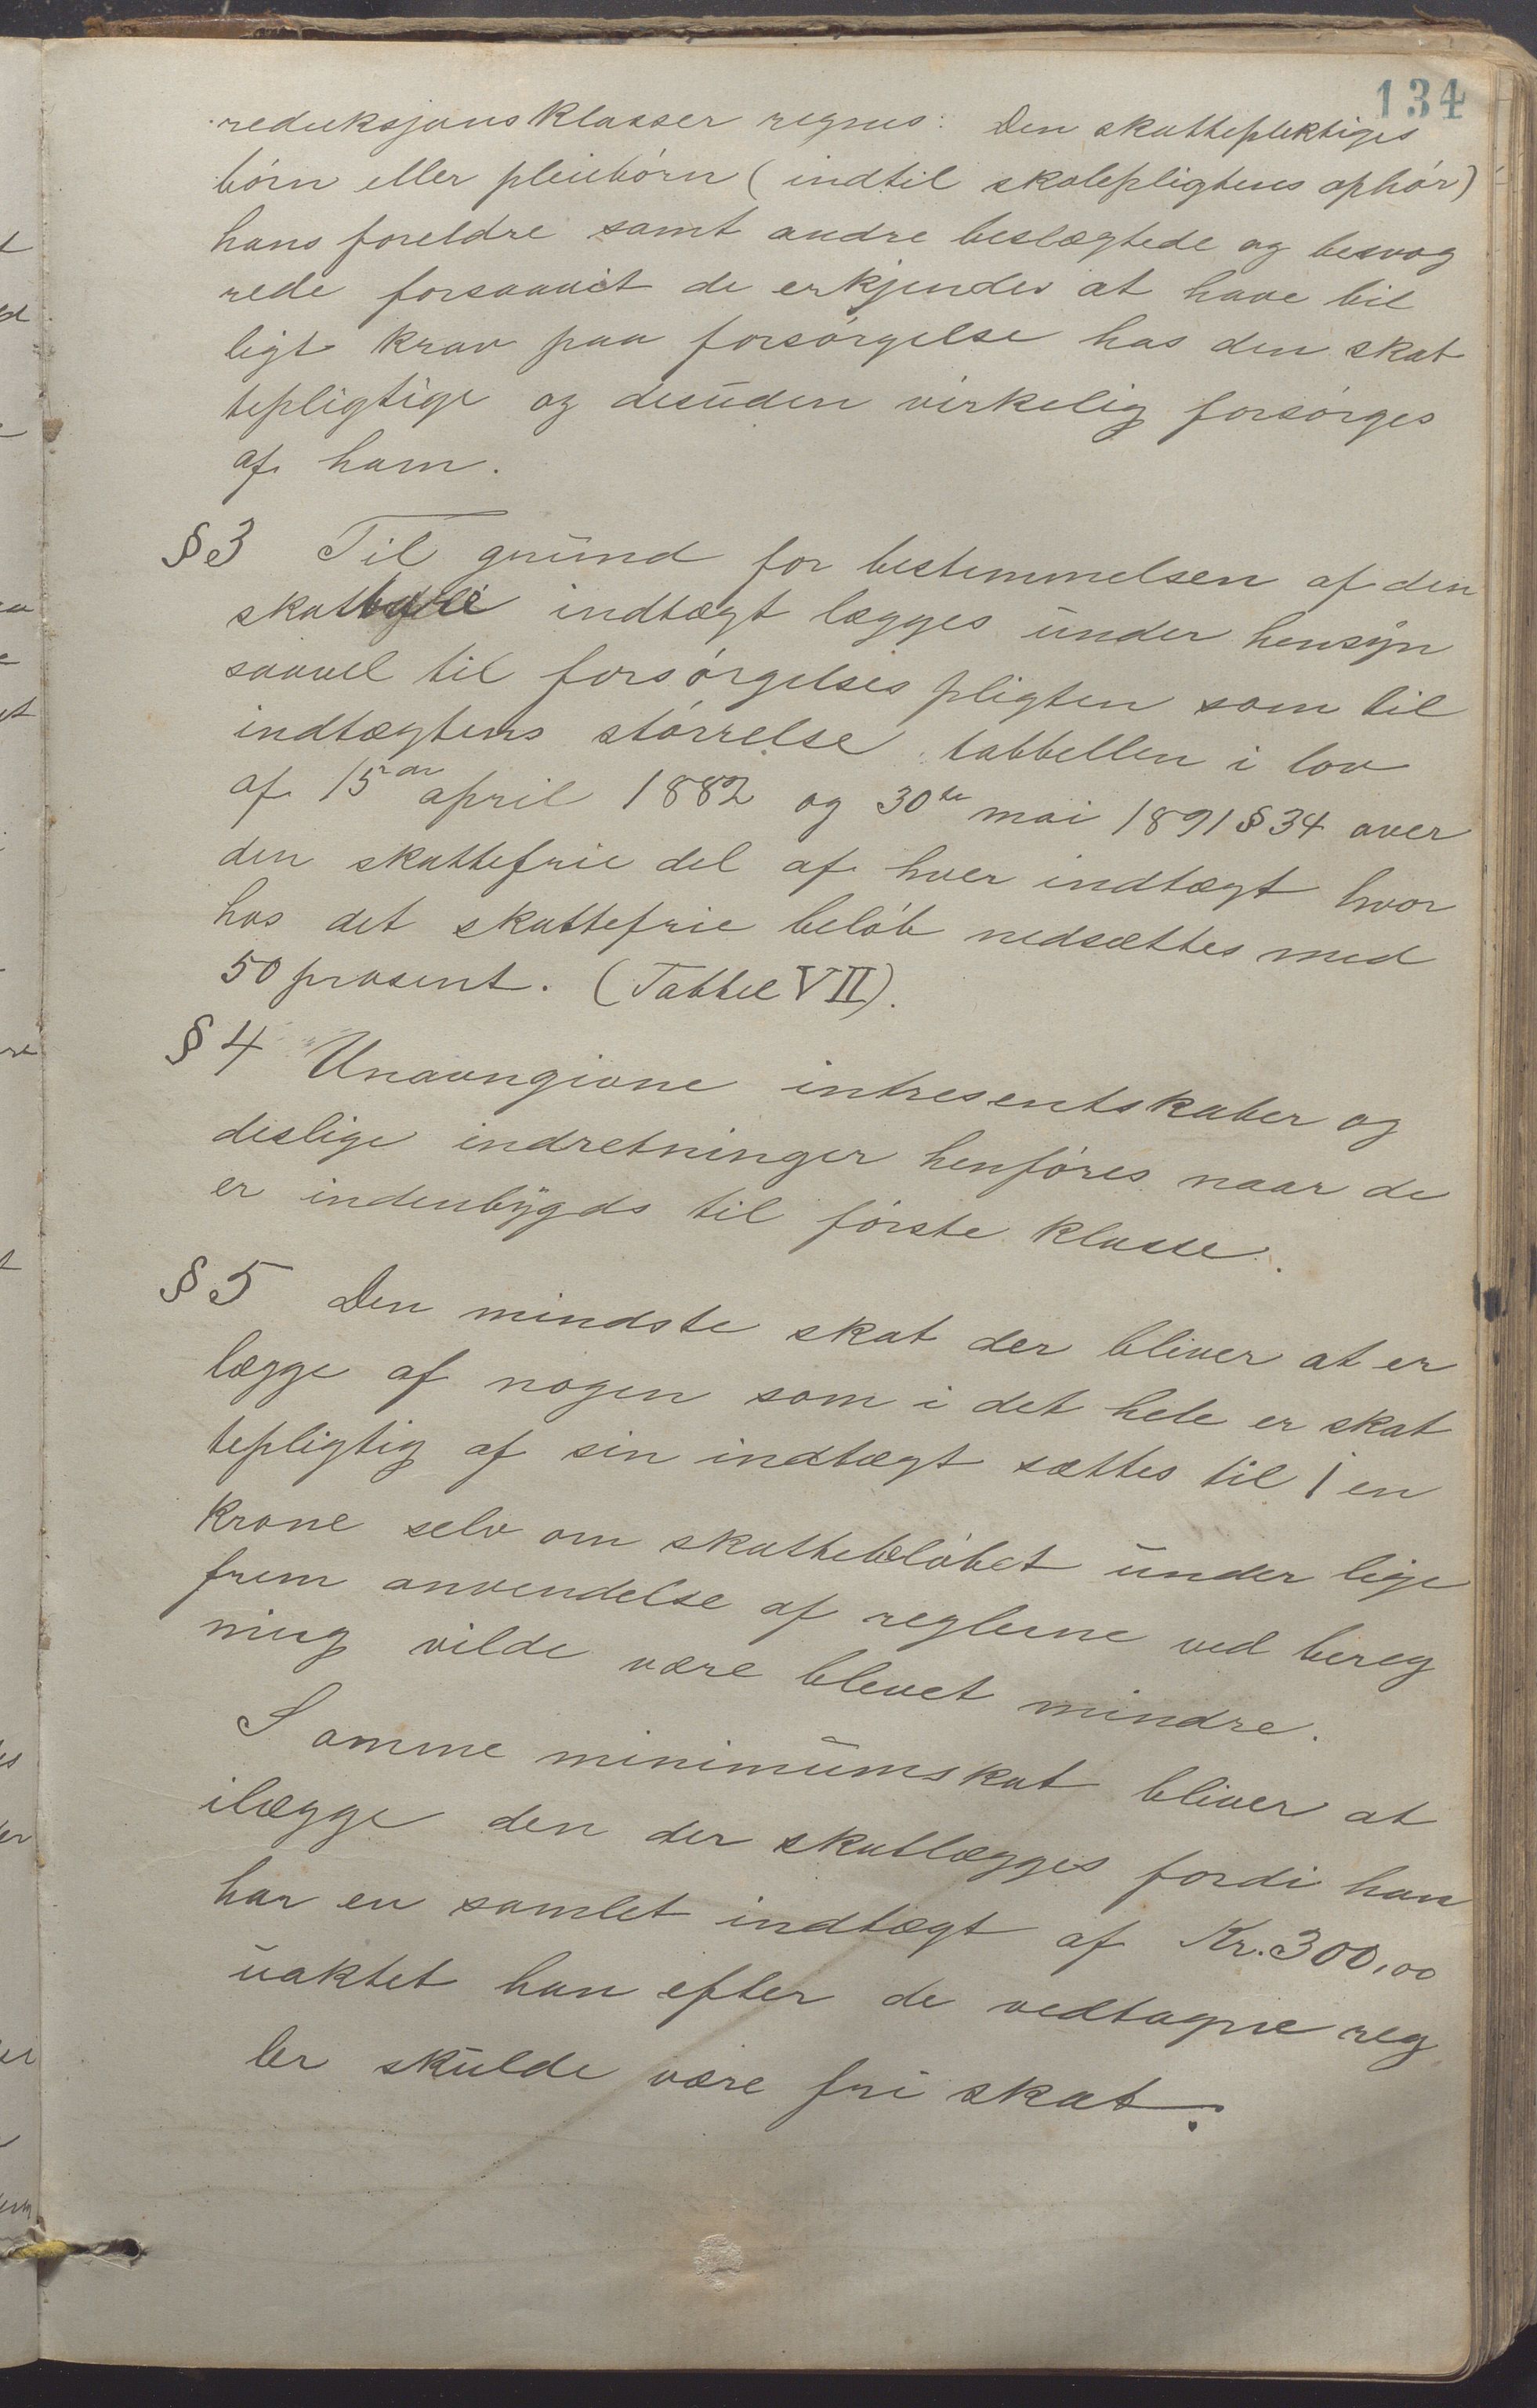 134
reduksjonsklasser regnes: Den skattepliktiges
børn eller pleiebørn (indtil skolepligtens ophør)
hans foreldre samt andre beslægtede og besvog
rede forsaavit de erkjendes at have bil
ligt krav paa forsørgelse hos den skat
tepligtige og desuden virkelig forsørges
af ham.
§3 Til grund for bestemmelsen af den
skatbare indtægt lægges under hensyn
saavel til forsørgelses pligten som til
indtægtens størrelse tabbellen i lov
af 15de april 1882 og 30te mai 1891 §34 over
den skattefrie del af hver indtægt hvor
hos det skattefrie beløb nedsættes med
50 prosent. (Tabbel VII).
§4 Unavngivne intresentskaber og
deslige indretninger henføres naar de
er indenbygds til første klasse.
§5 Den mindste skat der bliver at er
lægge af nogen som i det hele er skat
tepligtig af sin indtægt sættes til 1 en
krone selv om skattebeløbet under lige
frem anvendelse af reglerne ved bereg
ning vilde være blevet mindre.
Samme minimumskat bliver at
ilægge den der skatlægges fordi han
har en samlet indtægt af Kr. 300,00
uaktet han efter de vedtagne reg
ler skulde være fri skat.